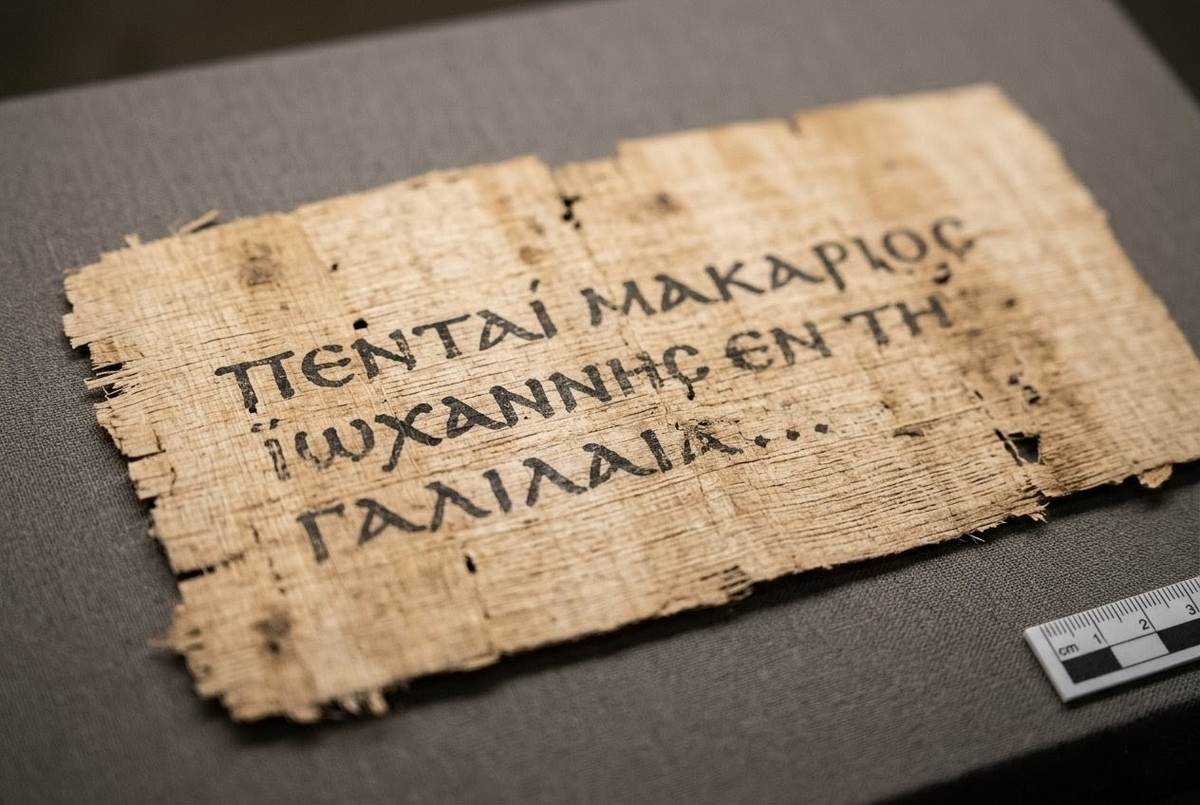 ΠΕΝΤΑΊ ΜΑΚΑΡΙΟϹ
ΪΩΧΑΝΝΗϹ ΕΝ ΤΗ
ΓΑΛΙΛΑΙΑ...
cm 1 2 3